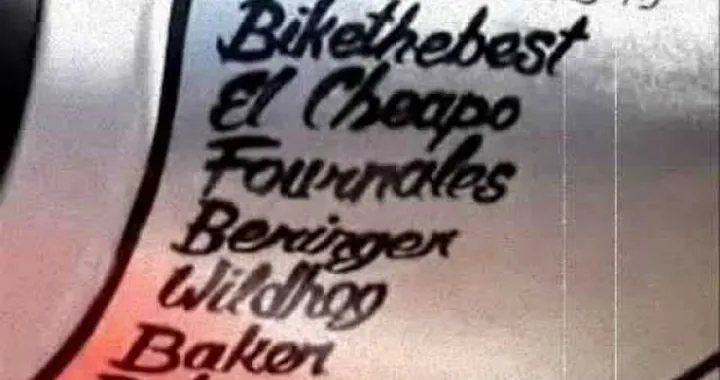 Bikethebest
El Cheapo
Fournales
Beringer
Wildhog
Baker